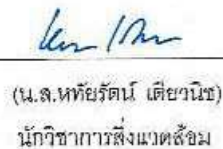 (น.ส.หทัยรัตน์ เดียวนิช)
นักวิชาการสิ่งแวดล้อม